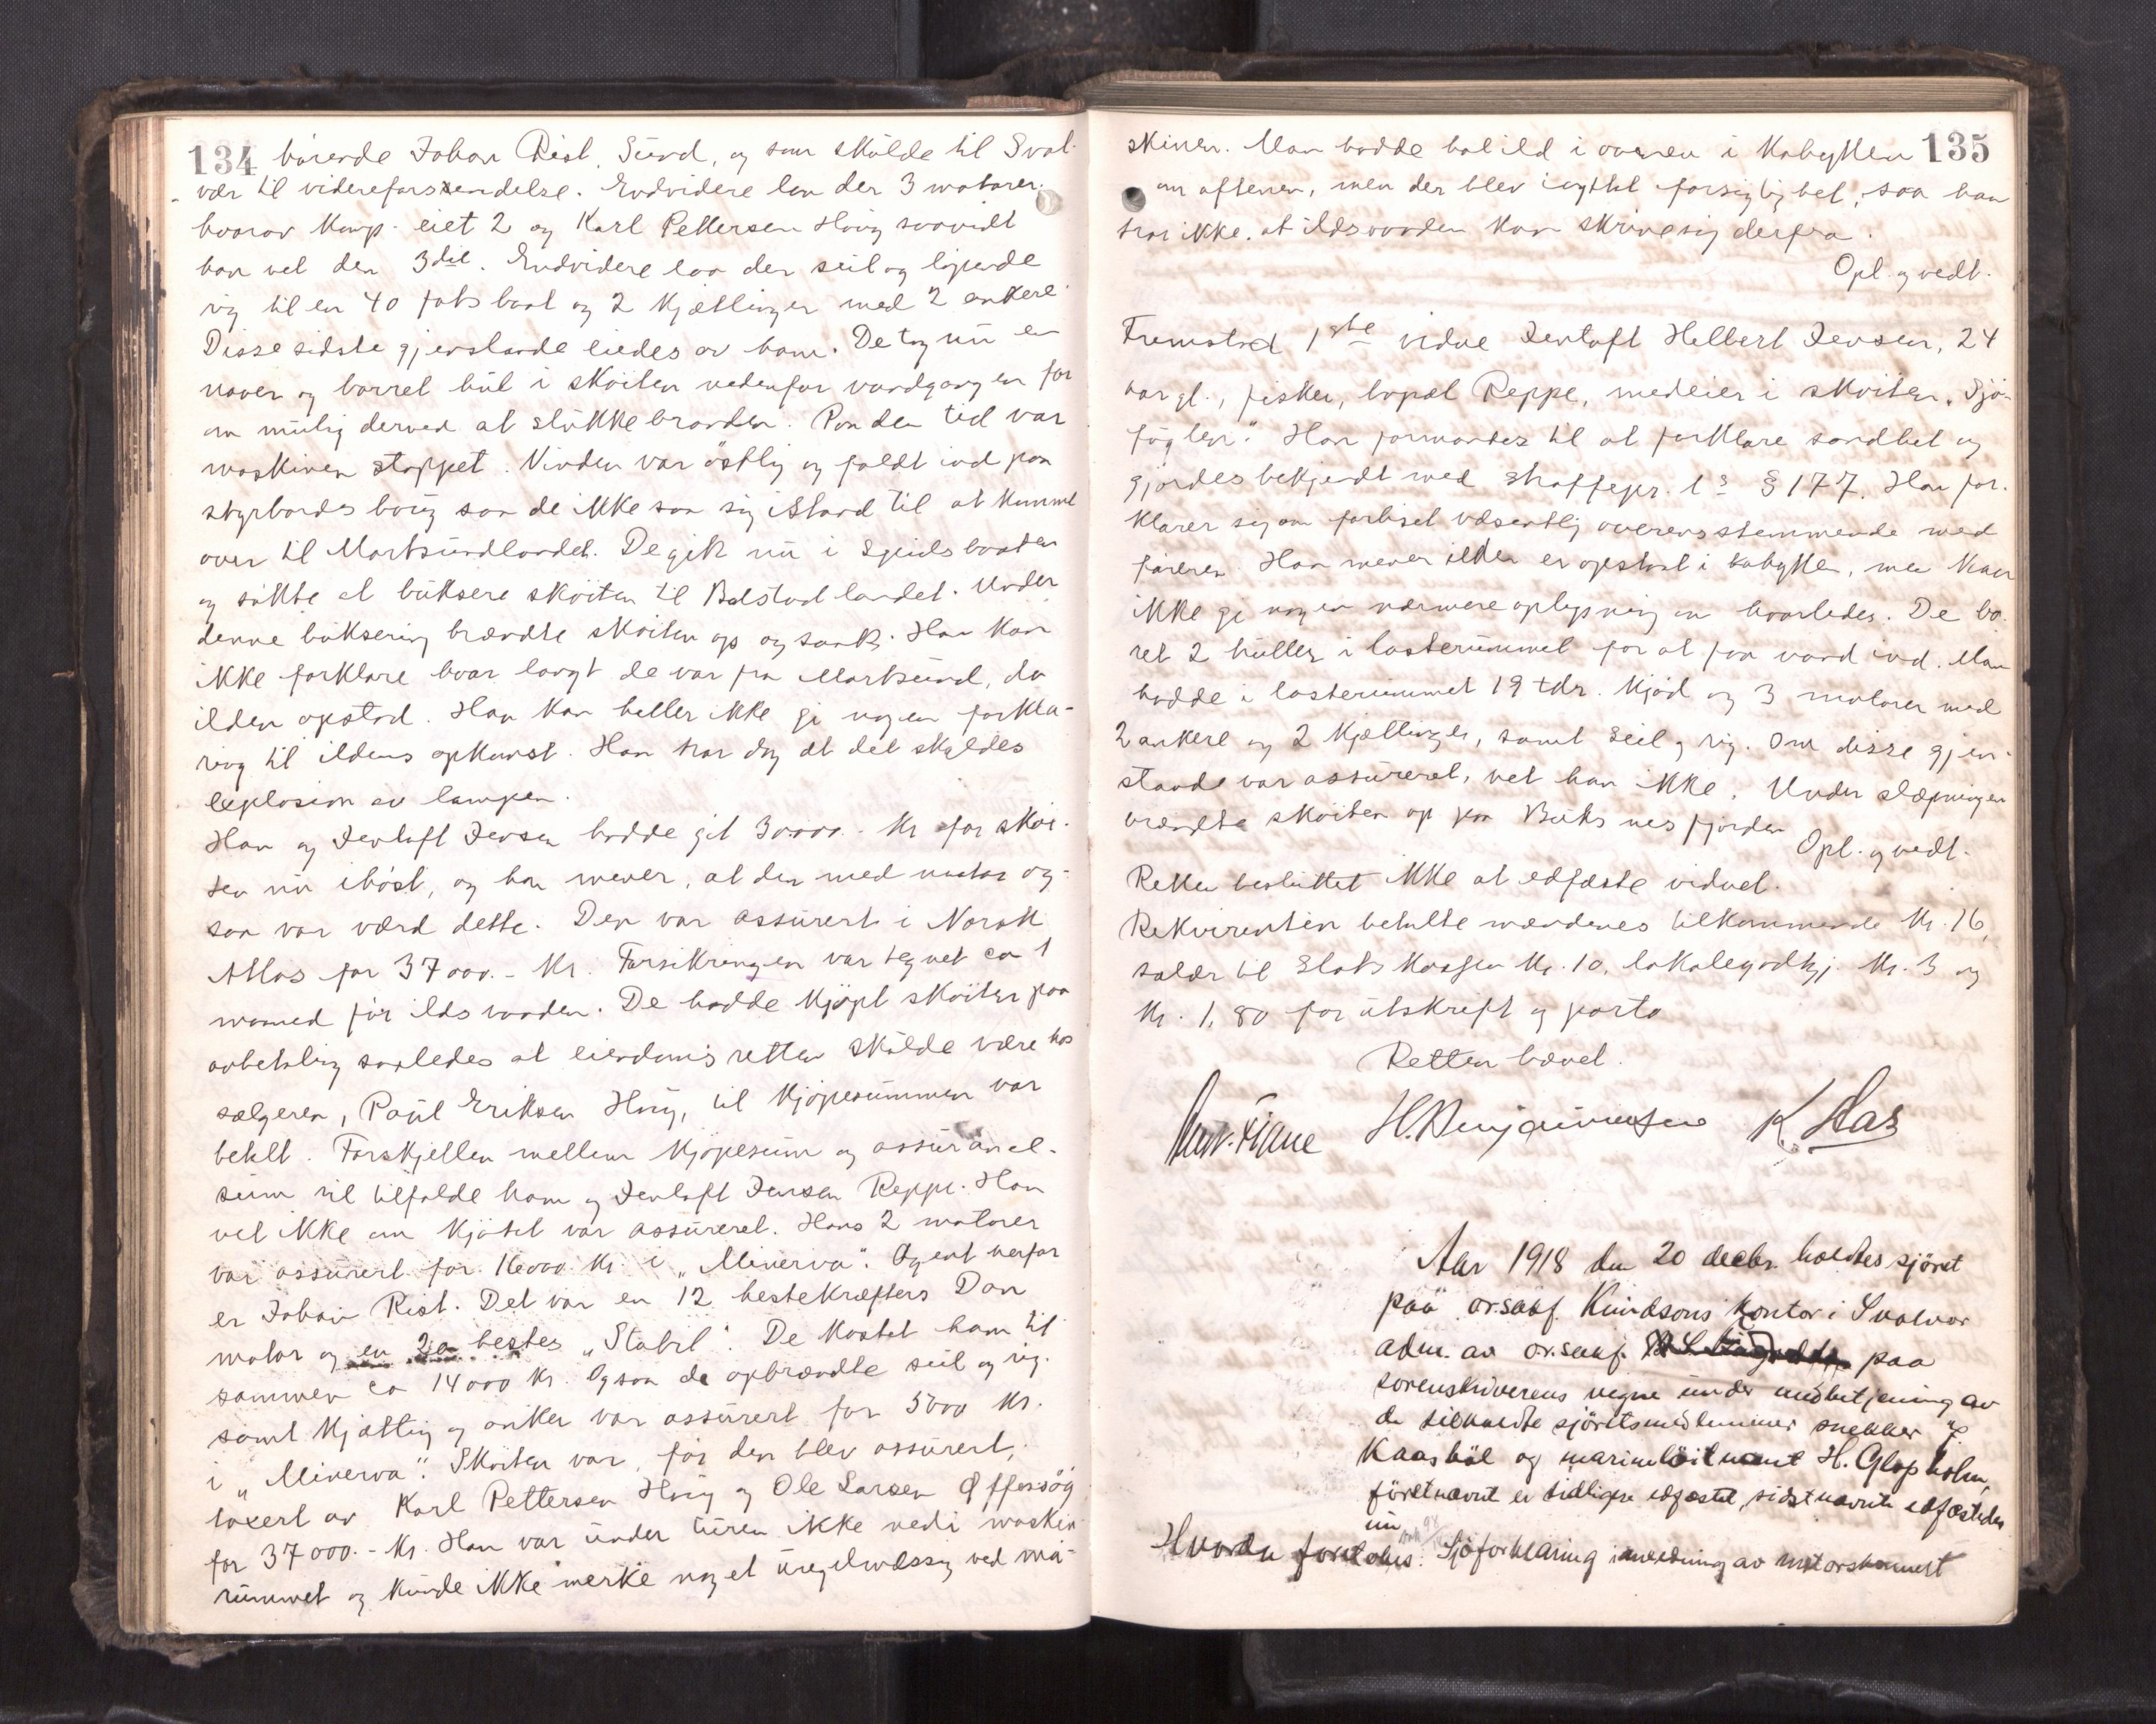 134
hörende Johan Rist, Sund, og som skulde til Svol-
vær til videreforsendelse. Endvidere laa der 3 motorer,
hvorav komp. eiet 2 og Karl Pettersen Haug saavidt
han vet den 3die. Endvidere laa der seil og løpende
rig til en 40 fots baat og 2 kjættinger med 2 ankere.
Disse sidste gjenstande eiedes av ham. De tog nu en
naver og borret hul i skøiten nedenfor vandgangen for
om mulig derved at slukke branden. Paa den tid var
maskinen stoppet. Vinden var østlig og faldt ind paa
styrbords boug saa de ikke saa sig istand til at komme
over til Mortsundlandet. De gik nu i Speidsbaaten
og søkte at buksere skøiten til Balstad landet. Under
denne buksering brændte skøiten op og sank. Han kan
ikke forklare hvor langt de var fra Mortsund, da
ilden opstod. Han kan heller ikke gi nogen forkla-
ring til ildens opkomst. Han tror dog at det skyldes
explosion av lampen.
Han og Jentoft Jensen hadde git 30000.- Kr for skøi-
ten nu ihøst, og han mener, at den med motor og-
saa var værd dette. Den var assurert i Norsk
Atlas for 37000.- Kr. Forsikringen var tegnet ca 1
maaned før ildsvaaden. De hadde kjøpt skøiten paa
avbetaling saaledes at eiendomsretten skulde være hos
sælgeren, Paul Eriksen Haug, til kjøpesummen var
betalt. Forskjellen mellem kjøpesum og assurance-
sum vil tilfalde ham og Jentoft Jensen Reppe. Han
vet ikke om kjøtet var assureret. Hans 2 motorer
var assurert for 16000 Kr. i „Minerva". Agent herfor
er Johan Rist. Det var en 12 hestekræfters Dan
motor og en 20 hestes „Stabil". De kostet ham til
sammen ca 14000 Kr. Ogsaa de opbrændte seil og rig
samt kjætting og anker var assurert for 5000 Kr.
i „Minerva". Skøiten var, før den blev assurert,
taxert av Karl Pettersen Haug og Ole Larsen Offersøy
for 37000.- Kr. Han var under turen ikke nedi maskin-
rummet og kunde ikke merke noget uregelmæssig ved ma-
135
skinen. Man hadde hat ild i ovnen i Kabyssen
om aftenen, men der blev iagttat forsigtighet, saa han
tror ikke, at ildsvaaden kan skrive sig derfra.
Opl. og vedt.
Fremstod 1ste vidne Jentoft Helbert Jensen, 24
aar gl., fisker, bopæl Reppe, medeier i skøiten „Sjø-
fuglen". Han formantes til at forklare sandhet og
gjordes bekjendt med straffepr. l's § 177. Han for-
klarer sig om forliset væsentlig overensstemmende med
føreren. Han mener ilden er opstaat i kabyssen, men kan
ikke gi nogen nærmere oplysning om hvorledes. De bo-
ret 2 huller i lasterummet for at faa vand ind. Man
hadde i lasterummet 19 tdr. kjød og 3 motorer med
2 ankere og 2 kjættinger, samt seil og rig. Om disse gjen-
stande var assureret, vet han ikke. Under slæpningen
brændte skøiten op paa Buksnesfjorden
Opl. og vedt.
Retten besluttet ikke at edfæste vidnet.
Rekvirenten betalte mændenes tilkommende Kr. 16,
salær til Statskassen Kr. 10, lokalegodtgj. Kr. 3 og
Kr. 1,80 for utskrift og porto
Retten hævet.
H. Benjaminsen K. Aas
Aar 1918 den 20 decbr. holdtes sjøret
paa or.sakf. Knudsons kontor i Svolvær
adm. av or.sakf. paa
sorenskriverens vegne under medbetjening av
de tilkaldte sjøretsmedlemmer snekker
Kaasbøl og marineløitnant H. Glapholm,
førstnævnte er tidligere edfæstet, sidstnævnte edfæstedes
nu
Hvorda foretokes: Sjøforklaring i anledning av motorskonnert